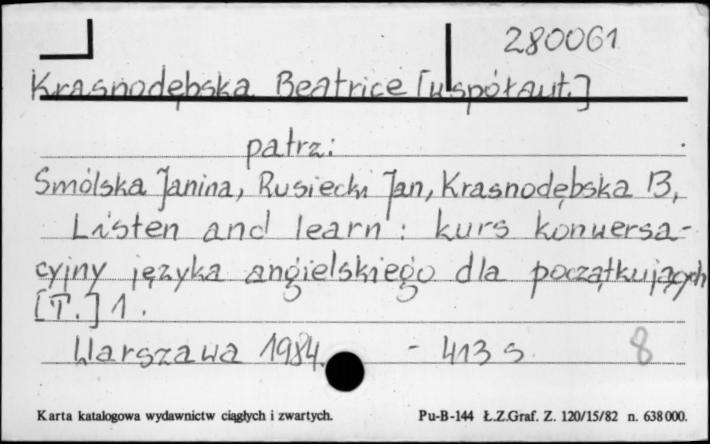 280061
Krasnodębska Beatrice [współaut.]
patrz:
Smólska Janina, Rusiecki Jan, Krasnodębska B,
Listen and learn : kurs konwersa-
cyjny języka angielskiego dla początkujących
[T.] 1.
Warszawa 1984. - 413 s. 8
Karta katalogowa wydawnictw ciągłych i zwartych. Pu-B-144 Ł.Z.Graf. Z. 120/15/82 n. 638 000.